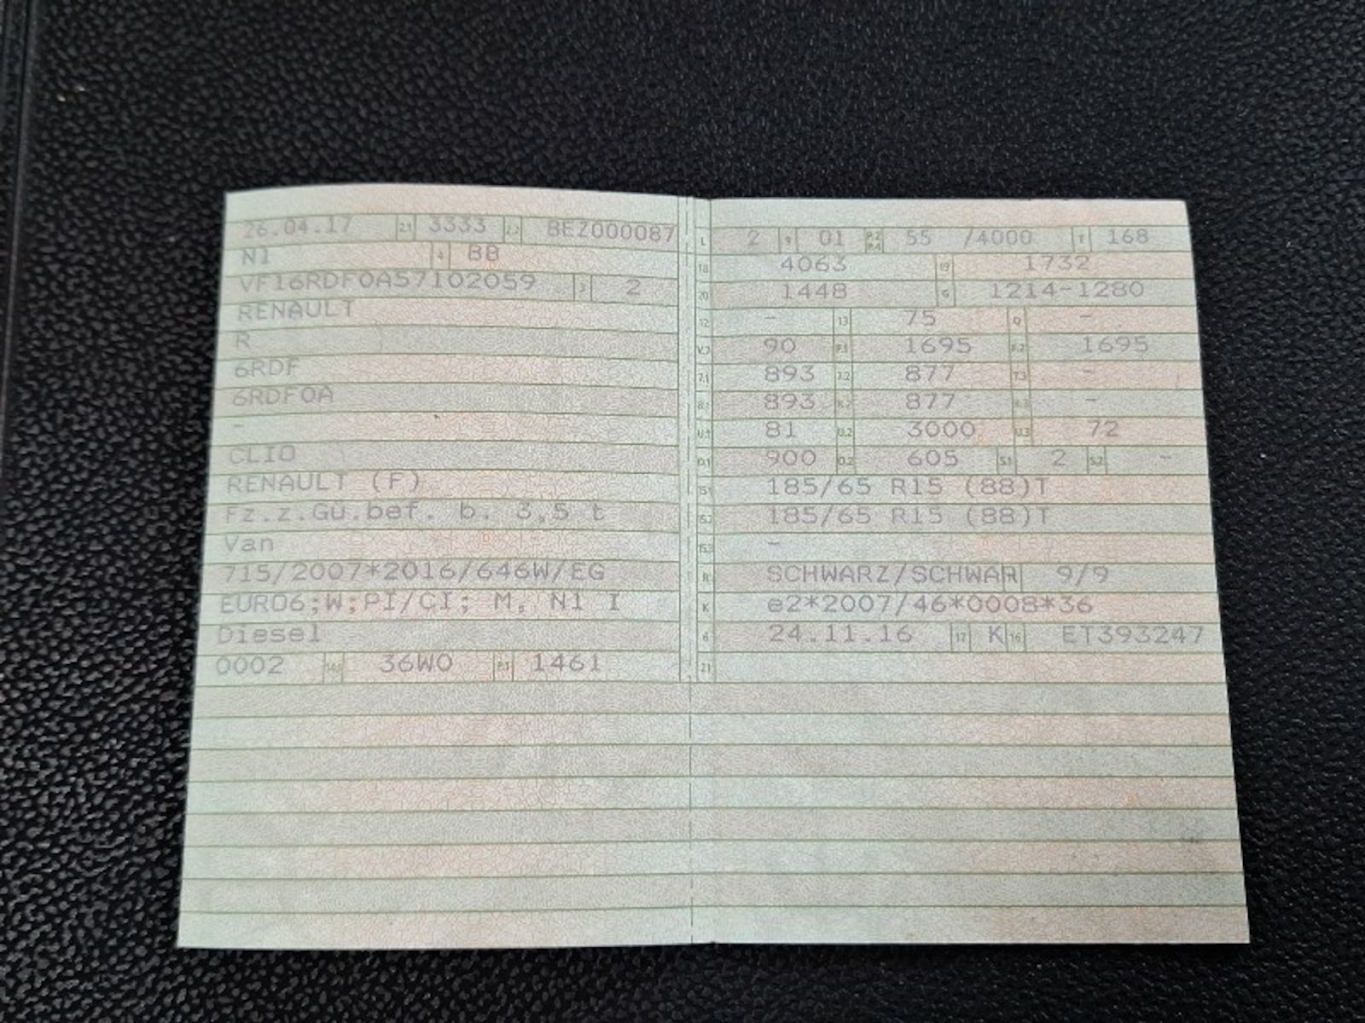 26.04.17 2.1 3333 2.2 BEZ000087
N1 4 BB
VF16RDF0A57102059 3 2
RENAULT
R
6RDF
6RDF0A
-
CLIO
RENAULT (F)
Fz.z.Gü.bef. b. 3,5 t
Van
715/2007*2016/646W/EG
EURO6;W;PI/CI; M, N1 I
Diesel
0002 14.1 36W0 P.1 1461
L 2 9 01 P.2 P.4 55 /4000 T 168
18 4063 19 1732
20 1448 G 1214-1280
12 - 13 75 Q -
V.7 90 F.1 1695 F.2 1695
7.1 893 7.2 877 7.3 -
8.1 893 8.2 877 8.3 -
U.1 81 U.2 3000 U.3 72
O.1 900 O.2 605 S.1 2 S.2 -
15.1 185/65 R15 (88)T
15.2 185/65 R15 (88)T
15.3 -
R SCHWARZ/SCHWAR 9/9
K e2*2007/46*0008*36
6 24.11.16 17 K 16 ET393247
21